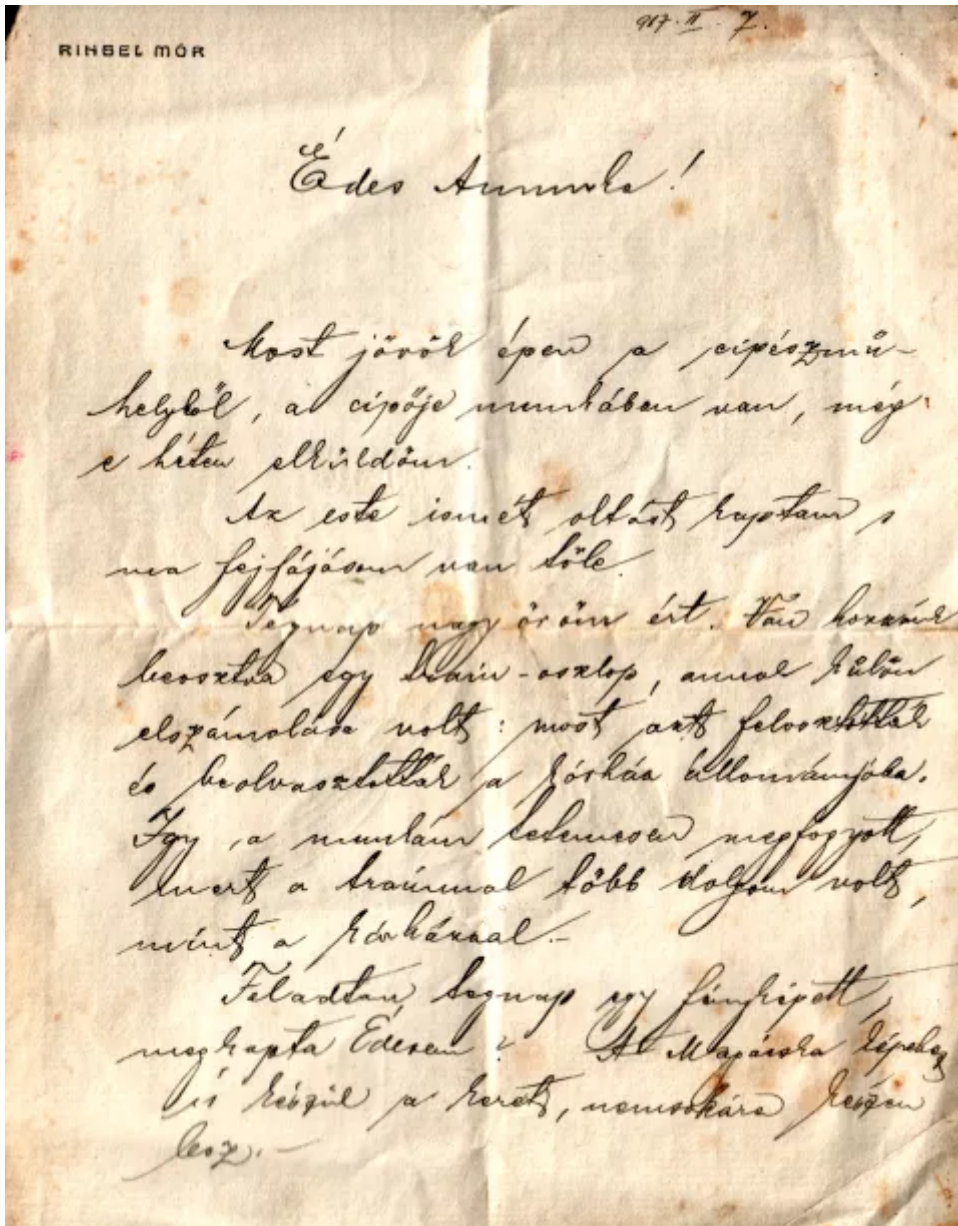 917. II. 7.
RINGEL MÓR
Édes Annuska!
Most jövök épen a cipészmű-
helyből, a cipője munkában van, még
e héten elküldöm.
Az este ismét oltást kaptam s
ma fejfájásom van tőle.
Tegnap nagy öröm ért. Van hozzánk
beosztva egy train-oszlop, annak külön
elszámolása volt: most azt feloszlatták
és beolvasztották a kórház állományába.
Így, a munkám tetemesen megfogyott,
mert a trainnal több dolgom volt,
mint a kórházzal.-
Feladtam tegnap egy fényképett,
megkapta Édesem? A Magácska képehez
is készül a keret, nemsokára készen
lesz.-